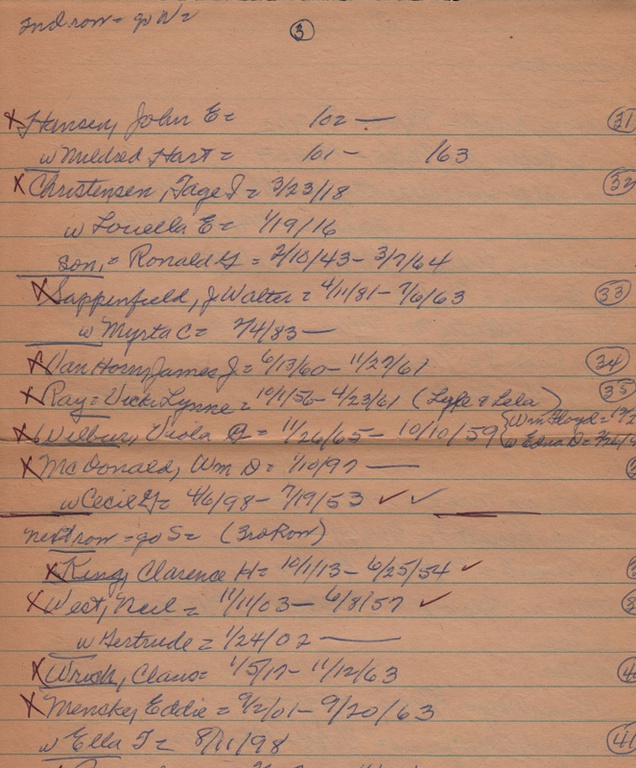 2nd row = go N =
3
X Hansen, John E = 102 — 31
w Mildred Hart = 101 - 163
X Christensen, Tage I = 3/23/18 32
w Louella E = 1/19/16
Son, = Ronald G = 2/10/43 - 3/7/64
X Sappenfield, J Walter = 4/11/81 - 7/6/63 33
w Myrta C = 7/4/83 —
X Van Horn, James J = 6/13/60 - 11/27/61 34
X Ray = Vicki Lynne = 10/1/56 - 4/23/61 (Lyle & Lela) 35
X Wilbur, Viola = 11/26/65 - 10/10/59 Wm Floyd =
w Edna D =
X McDonald, Wm D = 1/10/97 —
w Cecil G = 4/6/98 - 7/19/53 ✓ ✓
next row = go S = (3rd Row)
X King, Clarence H = 10/1/13 - 6/25/54 ✓
X West, Neil = 11/11/03 - 6/8/57 ✓
w Gertrude = 1/24/02 —
X Claus = 1/5/17 - 11/12/63
X Menske, Eddie = 9/2/01 - 9/20/63
w Ella T = 8/11/98 41